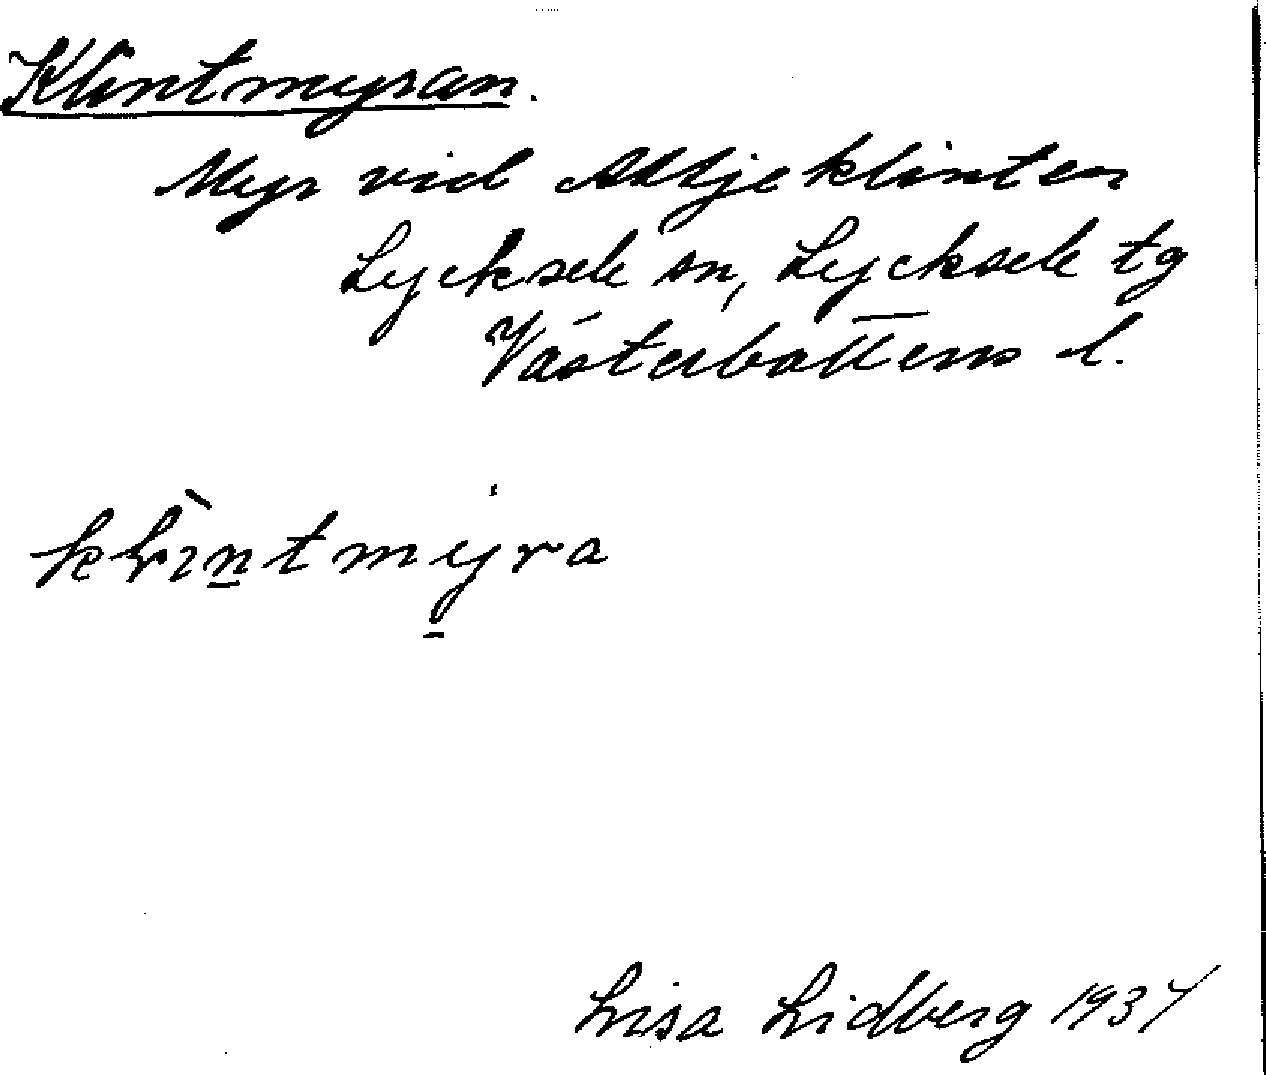 Klintmyran.
Myr vid klinten
Lycksele sn, Lycksele tg
Västerbottens l.
klìntmyra
Lisa Lidberg